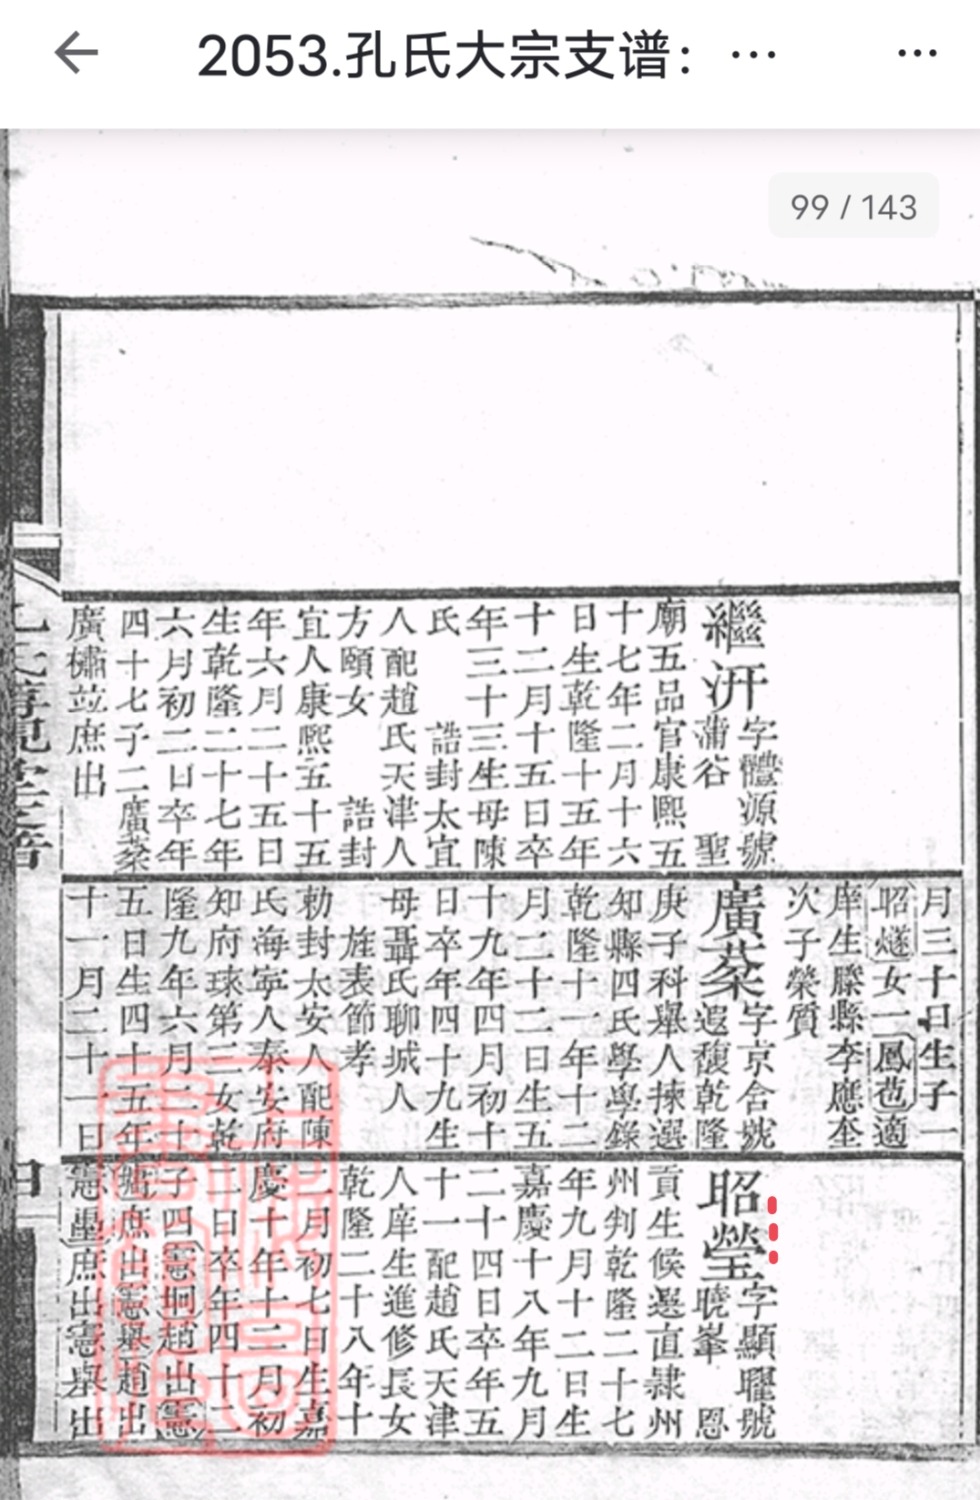 2053.孔氏大宗支谱：…
99 / 143
月三十日生子一
昭燧女二鳳苞適
庠生滕縣李應奎
次子榮質
繼汧字體源號
蒲谷 聖
廟五品官康熙五
十七年二月十六
日生乾隆十五年
十二月十五日卒
年三十三生母陳
氏 誥封太宜
人配趙氏天津人
方頤女 誥封
宜人康熙五十五
年六月二十五日
生乾隆二十七年
六月初二日卒年
四十七子二廣棻
廣橚並庶出
廣棻字京合號
馥乾隆
庚子科舉人揀選
知縣四氏學學錄
乾隆十一年十二
月二十二日生五
十九年四月初十
日卒年四十九生
母聶氏聊城人
旌表節孝
勅封太安人配陳
氏海寧人泰安府
知府球第三女乾
隆九年六月二十
五日生四十五年
十一月二十一日
昭瑩字顯曜號
曉峯 恩
貢生候選直隸州
州判乾隆二十七
年九月十二日生
嘉慶十八年九月
二十四日卒年五
十一配趙氏天津
人庠生進修長女
乾隆二十八年十
二月初七日生嘉
慶十年十二月初
二日卒年四十二
子四憲坰趙出憲
庶出憲舉趙出
憲壘庶出憲出